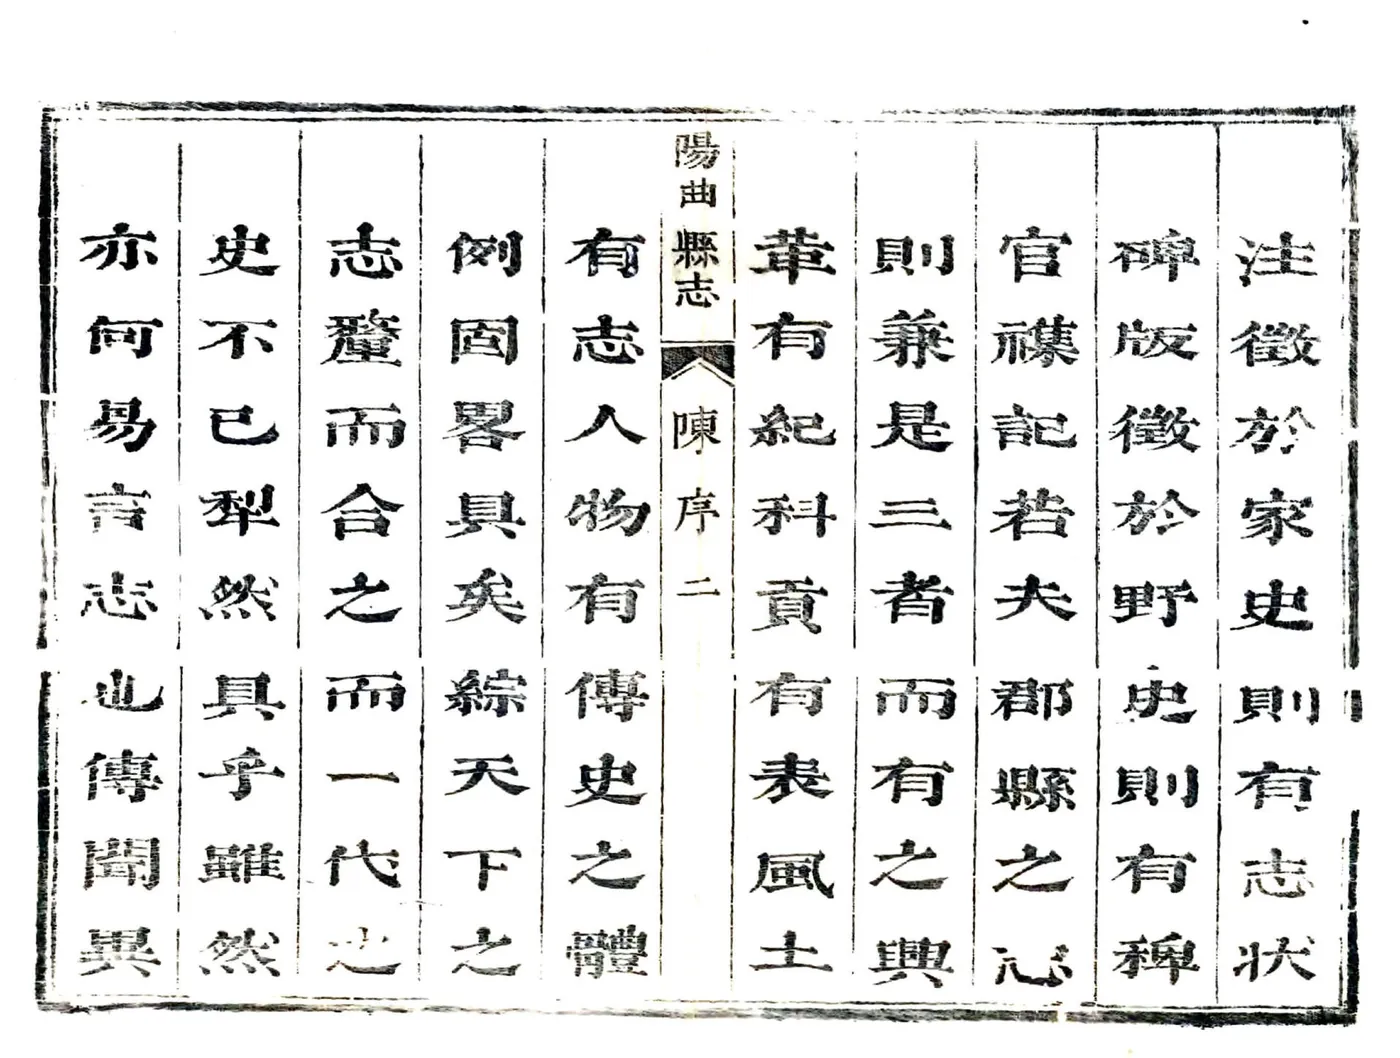 注徵於家史則有志狀
碑版徵於野史則有稗
官襍記若夫郡縣之志
則兼是三者而有之興
革有紀科貢有表風土
陽曲縣志
陳序
二
有志人物有傳史之體
例固畧具矣綜天下之
志釐而合之而一代之
史不已犁然具乎雖然
亦何易言志也傳聞異